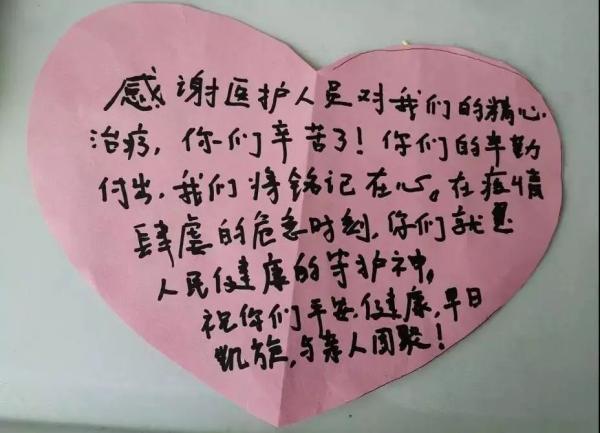 感谢医护人员对我们的精心
治疗，你们辛苦了！你们的辛勤
付出，我们将铭记在心。在疫情
肆虐的危急时刻，你们就是
人民健康的守护神，
祝你们平安、健康，早日
凯旋，与亲人团聚！